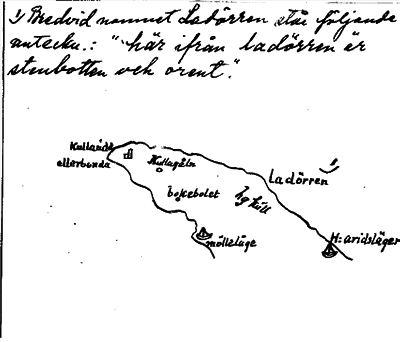 1) Bredvid namnet Ladörren står följande
anteckn.: "här ifrån ladörren är
stenbotten och orent".
Kullands
ellerbunda
Kullagåln
1)
Ladörren
bokebolet
hg küll
mölleläge
H:aridsläger